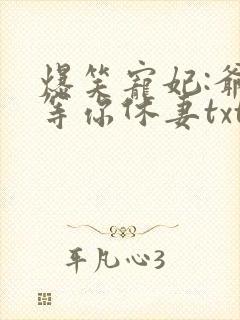 爆笑宠妃:爷
等你休妻txt
平凡心3